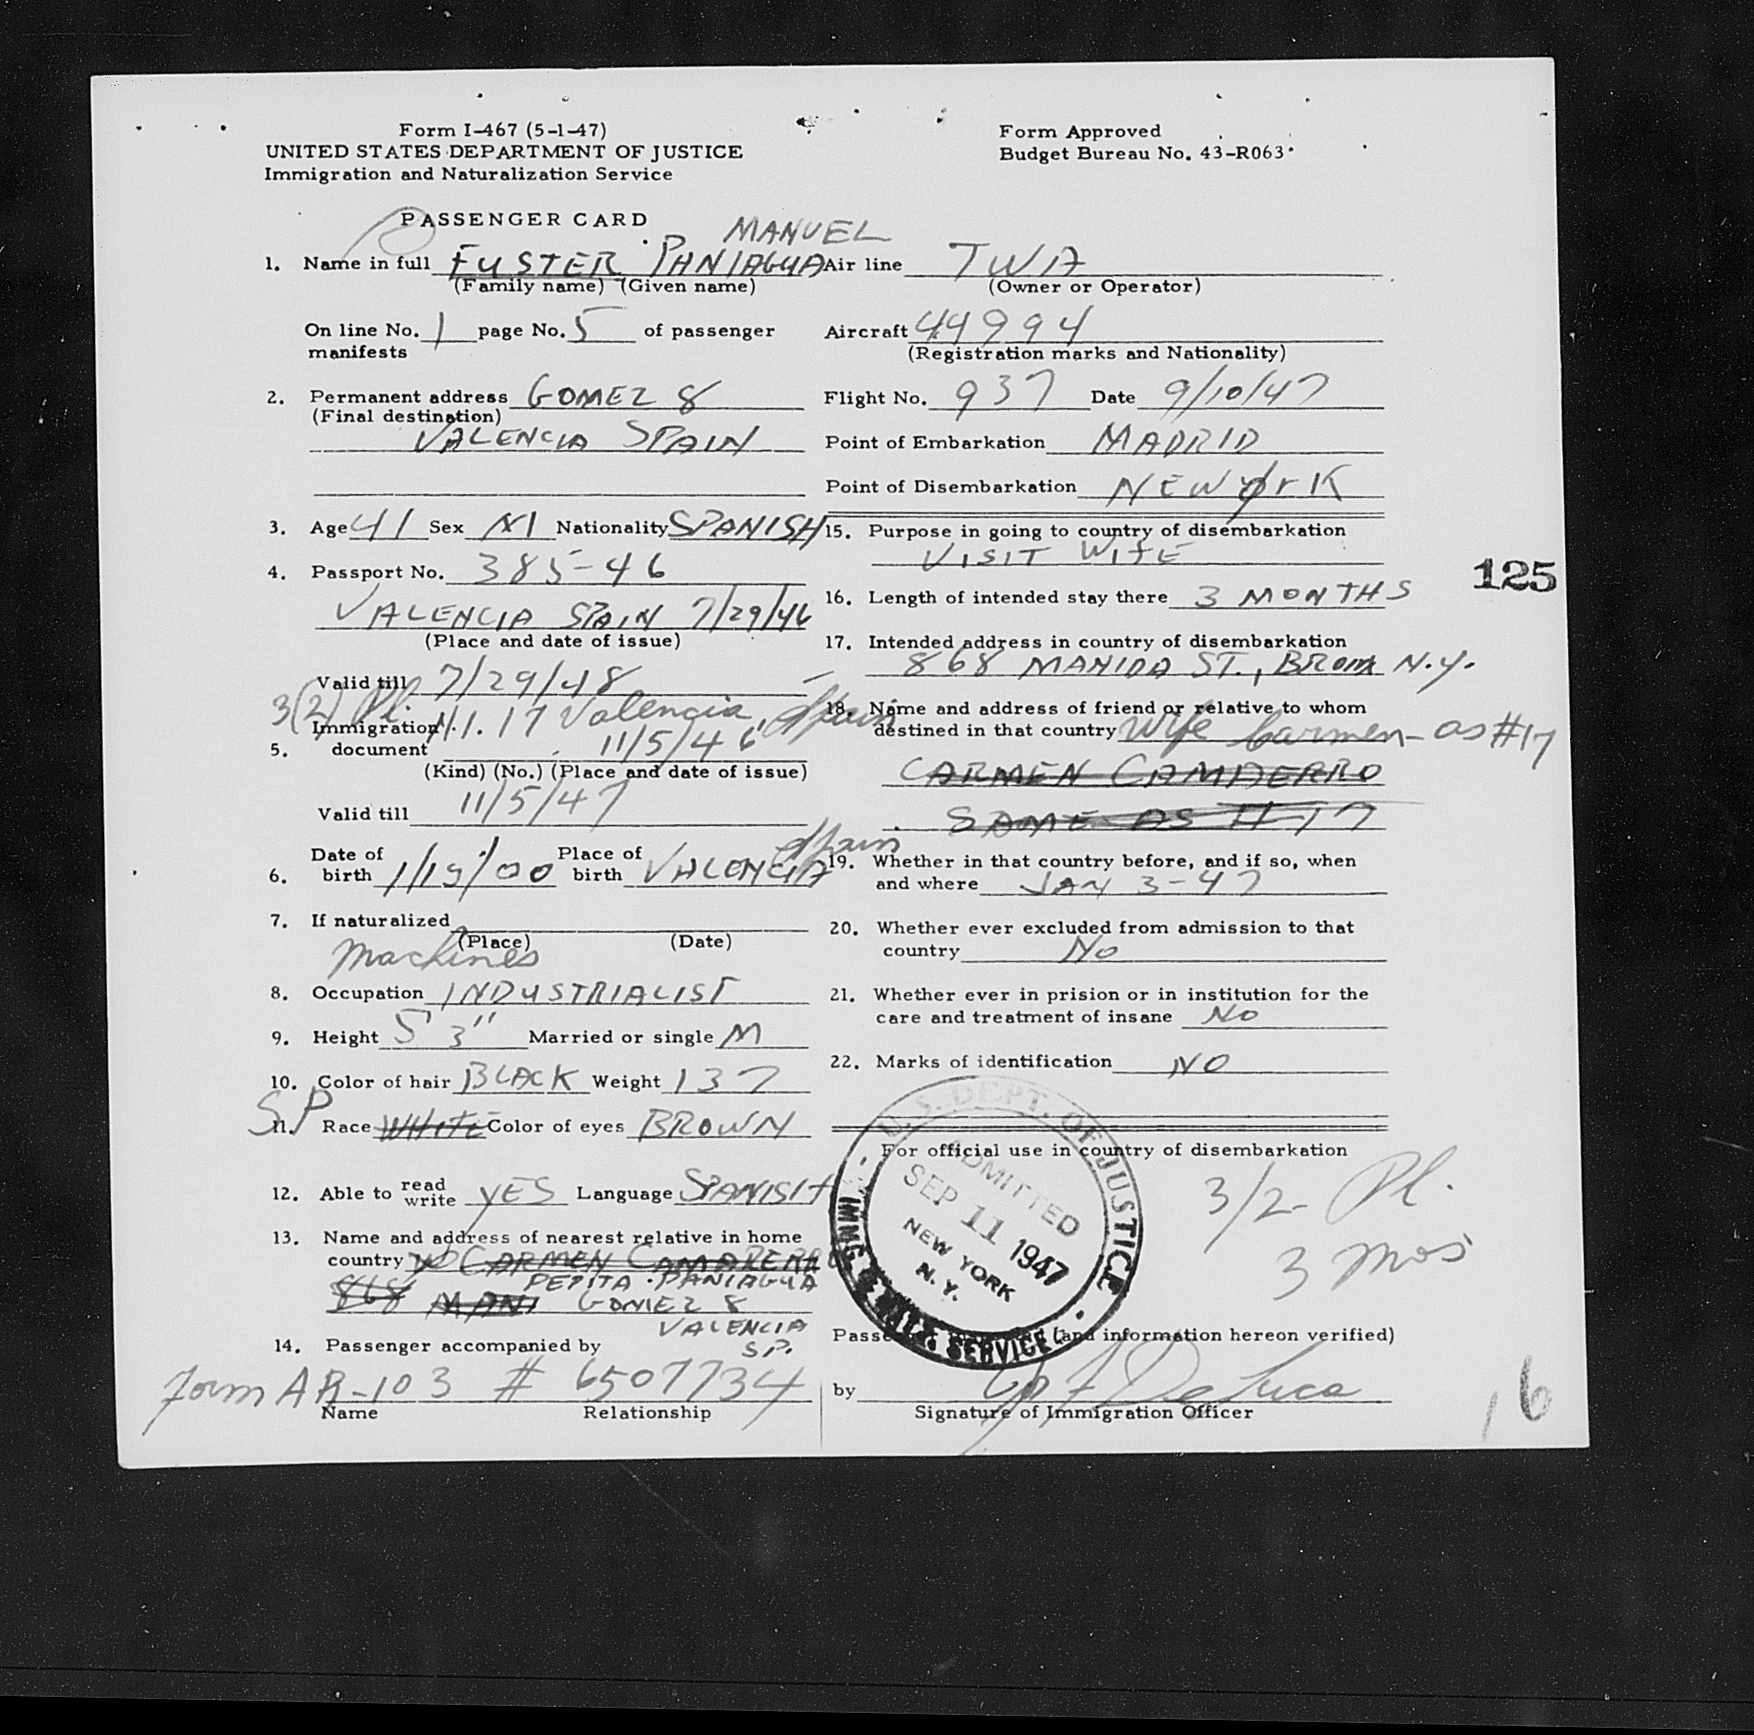 Form I-467 (5-1-47)
UNITED STATES DEPARTMENT OF JUSTICE
Immigration and Naturalization Service
Form Approved
Budget Bureau No. 43-R063
PASSENGER CARD
MANUEL
1. Name in full FUSTER PANIAGUA
(Family name) (Given name)
On line No. 1 page No. 5 of passenger
manifests
2. Permanent address GOMEZ 8
(Final destination)
VALENCIA SPAIN
3. Age 41 Sex M Nationality SPANISH
4. Passport No. 385-46
VALENCIA SPAIN 7/29/46
(Place and date of issue)
Valid till 7/29/48
3(2) Pl.
Immigration V. 17 Valencia, Spain
5. document 11/5/46
(Kind) (No.) (Place and date of issue)
Valid till 11/5/47
Spain
Date of Place of
6. birth 1/19/00 birth VALENCIA
7. If naturalized
(Place) (Date)
Machines
8. Occupation INDUSTRIALIST
9. Height 5' 3" Married or single M
10. Color of hair BLACK Weight 137
SP
11. Race WHITE Color of eyes BROWN
12. Able to read write YES Language SPANISH
13. Name and address of nearest relative in home
country CARMEN CAMARERRO
PEPITA PANIAGUA
868 MANI GOMEZ 8
VALENCIA
SP.
14. Passenger accompanied by
Form AR-103 # 6507734
Name Relationship
Air line TWA
(Owner or Operator)
Aircraft 44994
(Registration marks and Nationality)
Flight No. 937 Date 9/10/47
Point of Embarkation MADRID
Point of Disembarkation NEW YorK
15. Purpose in going to country of disembarkation
VISIT WIFE
16. Length of intended stay there 3 MONTHS
17. Intended address in country of disembarkation
868 MANIDA ST., BRONX N.Y.
18. Name and address of friend or relative to whom
destined in that country Wife Carmen - as #17
CARMEN CAMAERRO
SAME AS # 17
19. Whether in that country before, and if so, when
and where JAN 3-47
20. Whether ever excluded from admission to that
country No
21. Whether ever in prision or in institution for the
care and treatment of insane No
22. Marks of identification NO
For official use in country of disembarkation
3/2 Pl.
3 mos
U. S. DEPT. OF JUSTICE
ADMITTED
SEP 11 1947
NEW YORK
N. Y.
IMMIG. & NATZ. SERVICE
(and information hereon verified)
by De Luca
Signature of Immigration Officer
125
16